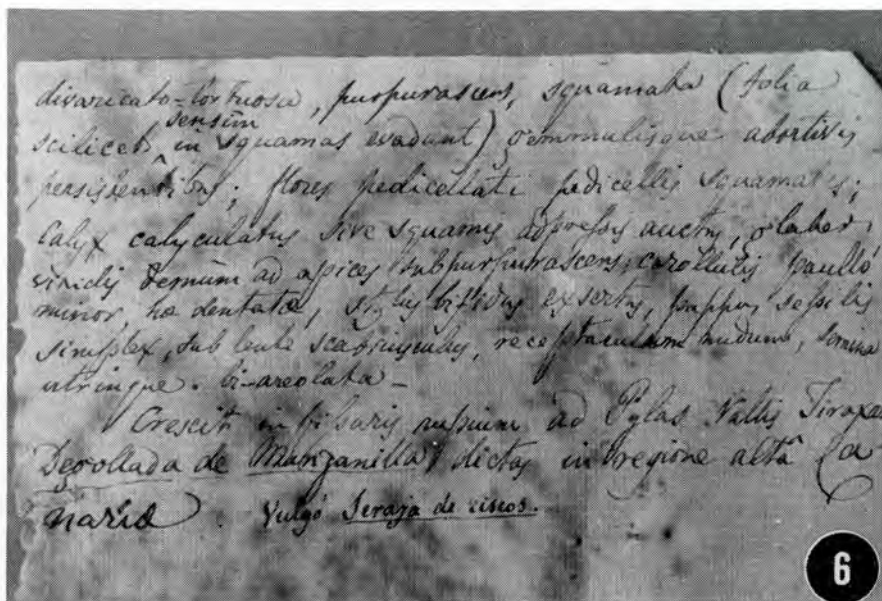 divaricato-tortuosa, purpurascens, squamata (folia
scilicet sensim in squamas evadunt) gemmulisque abortivis
persistentibus; flores pedicellati pedicellis squamatis;
Calyx calyculatus sive squamis adpressis auctus, glaber,
viridis demum ad apices subpurpurascens; corollulis paullo
minor, hæ dentatæ, stylus bifidus exsertus, pappus sessilis
simplex, sub lente scabriusculus, receptaculum nudum, semina
utrinque bi-areolata –
Crescit in fissuris rupium ad Pylas Vallis Tiraxa
Degollada de Manzanilla dictas in regione altâ Ca
naria. Vulgò Seraja de riscos.
6